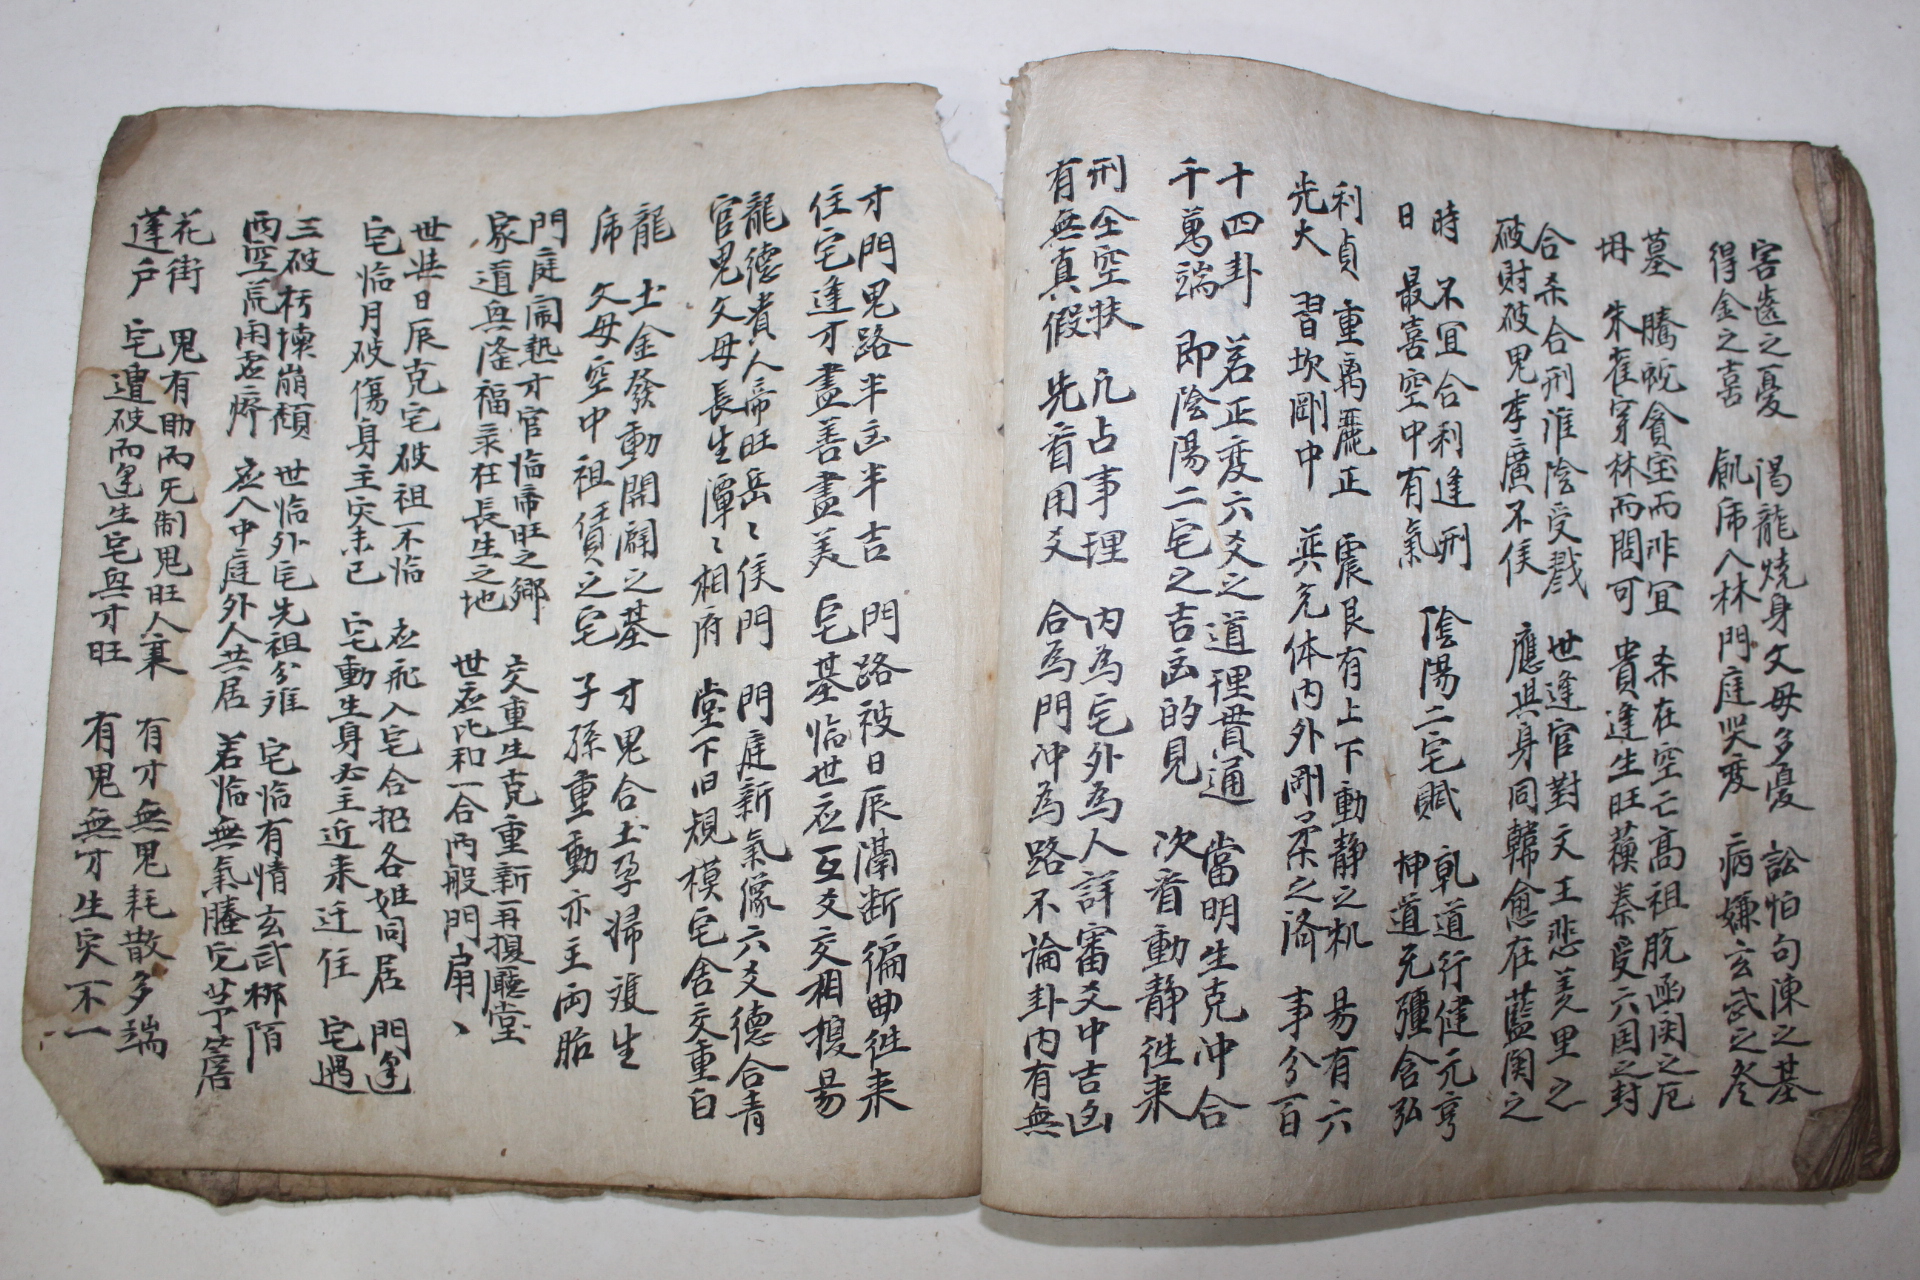 害遠之憂 渴龍燒身父母多憂 訟怕句陳之基
得金之喜 飢虎入林門庭哭变 病嫌玄武之冬
墓 騰蛇貪宝而非宜 杀在空亡高祖脫函関之厄
朱雀穿林而問可 貴逢生旺蘓秦受六国之封
合杀合刑淮陰受戮 世逢官對文王悲羑里之
破財破鬼李廣不侯 應興身同韓愈在藍関之
時 不宜合利逢刑 陰陽二宅賦 乾道行健元亨
日 最喜空中有氣 坤道无彊含弘
利貞 重离麗正 震艮有上下動静之机 易有六
光大 習坎剛中 巽兌体内外剛柔之済 事分百
十四卦 若正变六爻之道理貫通 當明生克冲合
千萬端 即陰陽二宅之吉凶的見 次看動静徃来
刑全空扶 凢占事理 内為宅外為人詳審爻中吉凶
有無真假 先看用爻 合為門冲為路不論卦内有無
才門鬼路半凶半吉 門路被日辰隔断徧曲徃来
住宅逢才盡善盡美 宅基临世应互爻交相換易
龍德貴人帝旺岳〻侯門 門庭新氣像六爻德合青
官鬼父母長生潭〻相府 堂下旧規模宅舍交重白
龍 土金發動開闢之基 才鬼合土孕婦雙生
虎 父母空中祖債之宅 子孫重動亦主両胎
門庭闹热才官临帝旺之鄉 交重生克重新再換廳堂
家道興隆福彔在長生之地 世应比和一合両般門扇
世並日辰克宅破祖不临 应飛入宅合招各姓同居 門逢
宅临月破傷身主灾未已 宅動生身必主近来迁住 宅遇
三破朽揀崩頽 世临外宅先祖分难 宅临有情玄武梛陌
両空荒闲虚癈 应入中庭外人共居 若临無氣騰它茅簷
花街 鬼有助而旡制鬼旺人衰 有才無鬼耗散多端
蓬戶 宅遭破而逢生宅興才旺 有鬼無才生灾不一